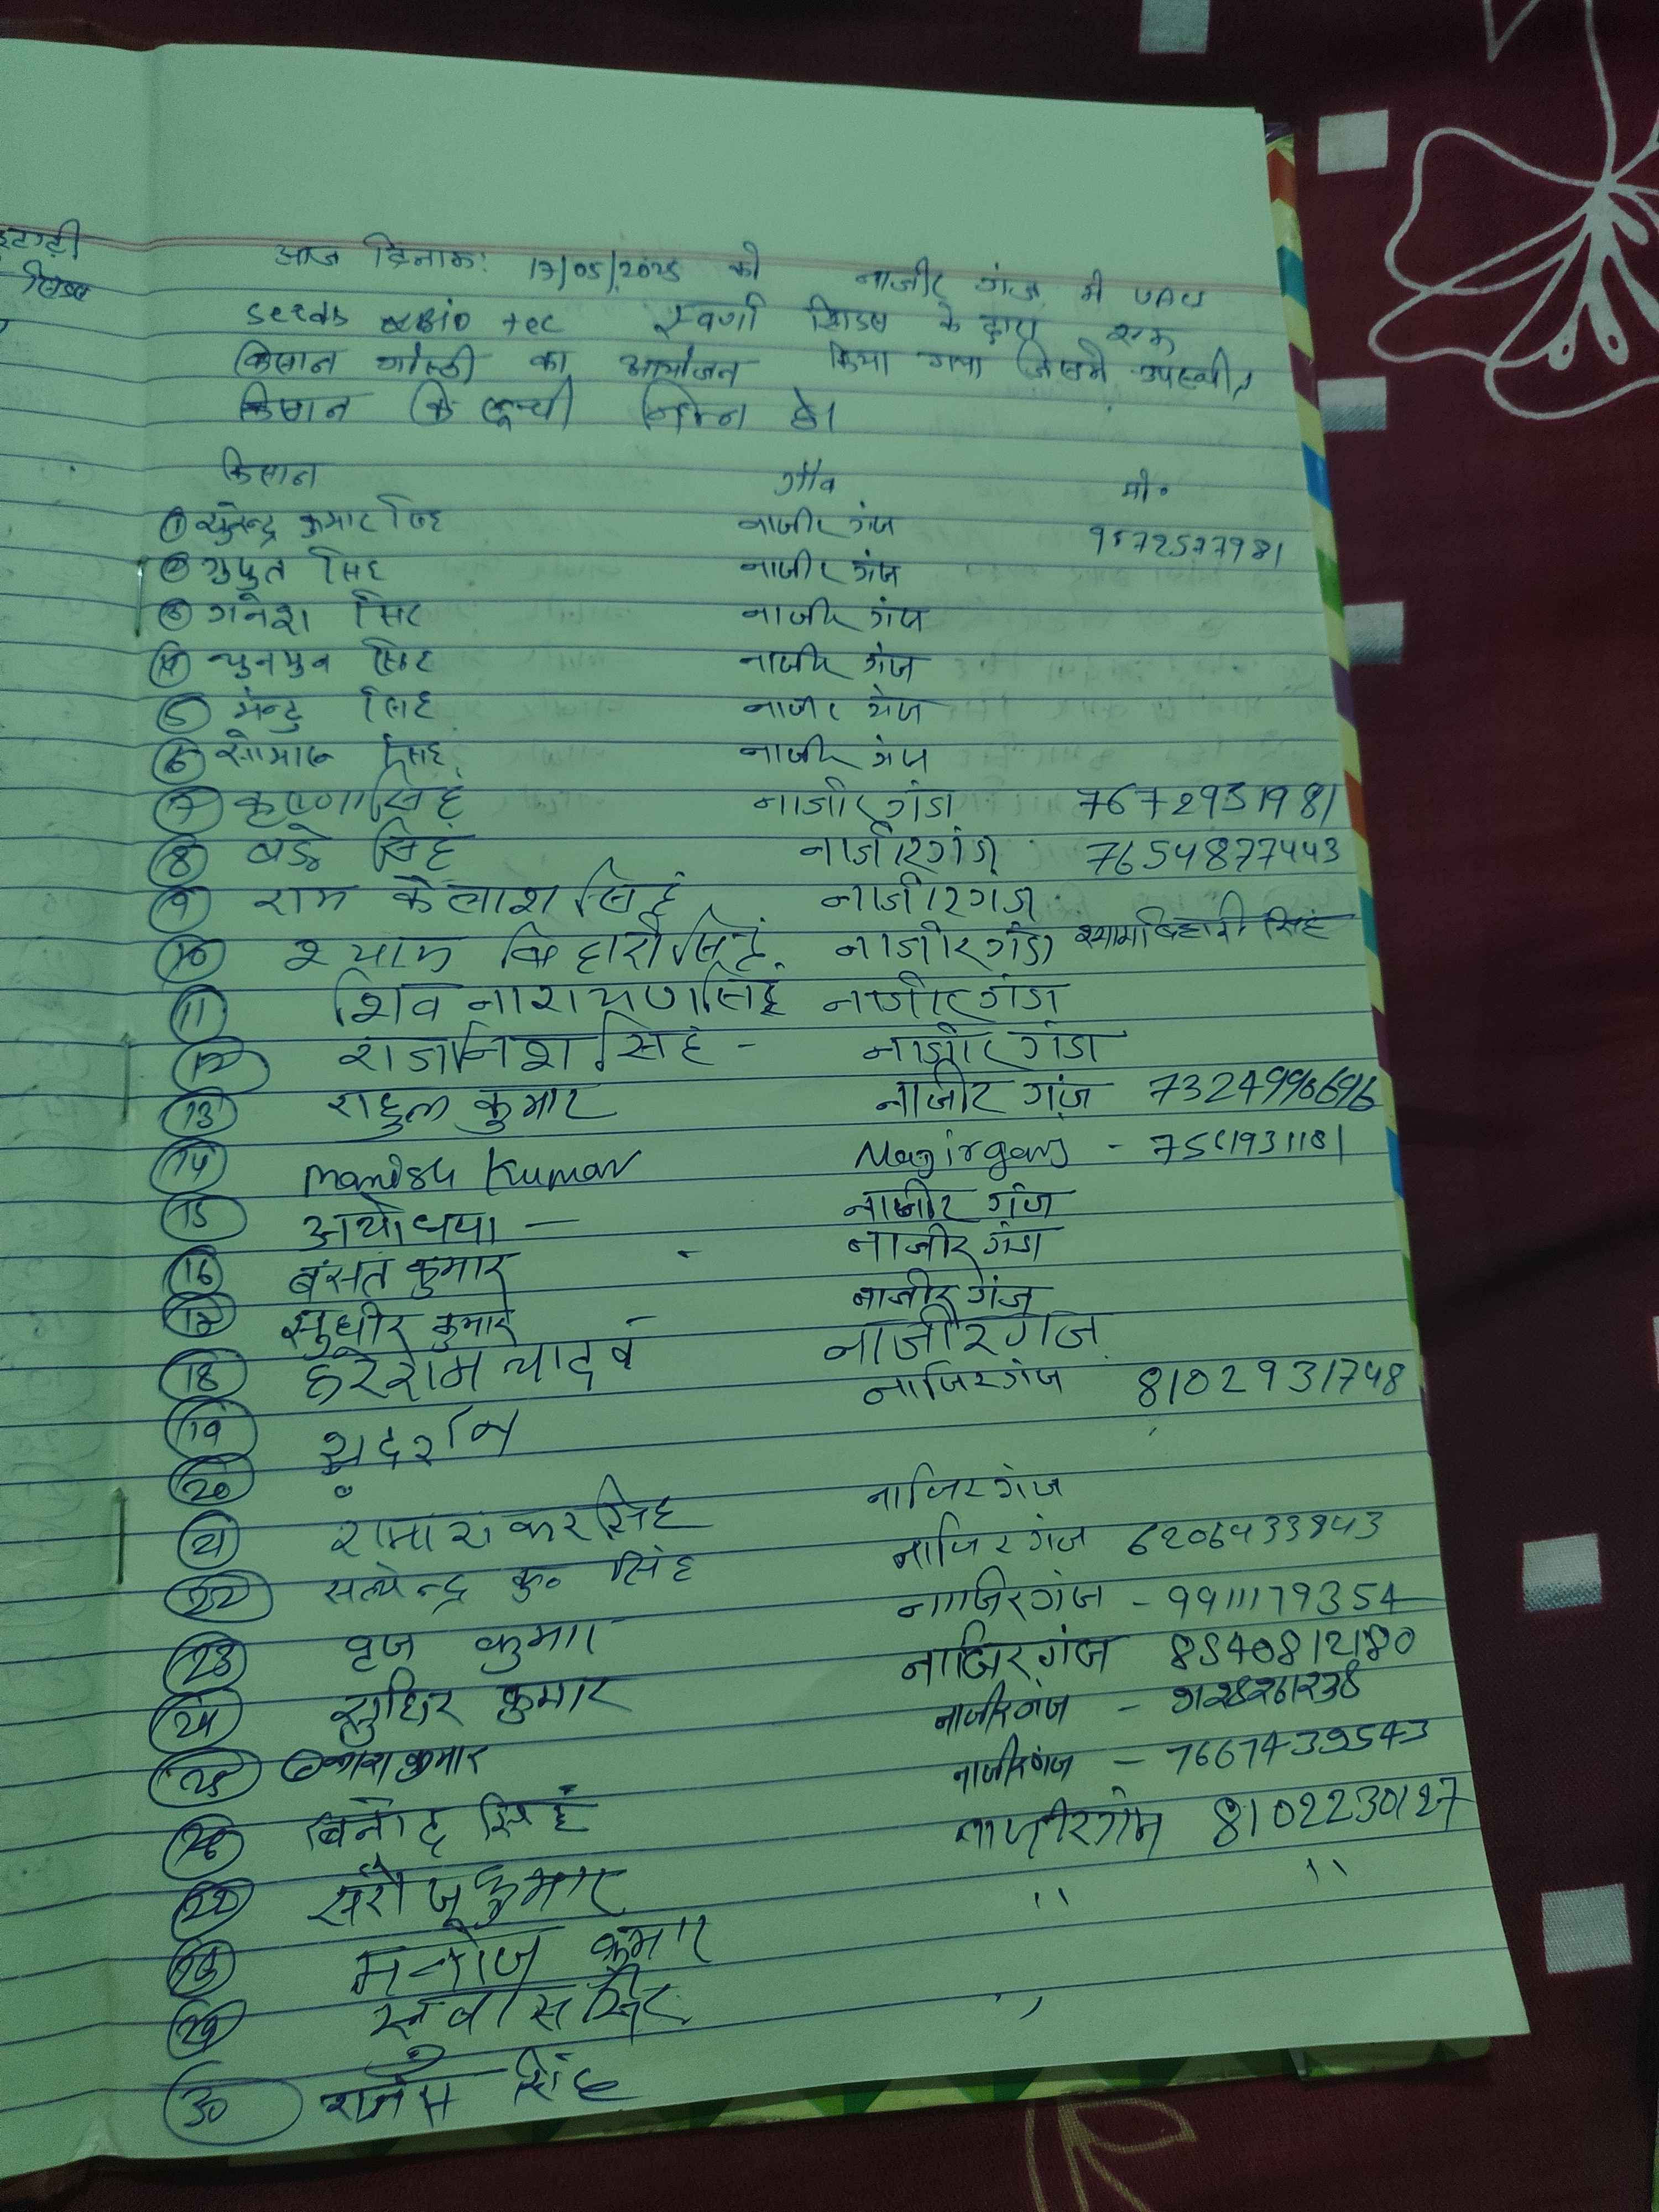 आज दिनांक: 17/05/2025 को नाजीर गंज में UAU
seeds & Bio tec स्वर्णा सिडस के द्वारा एक
किसान गोष्ठी का आयोजन किया गया जिसमे उपस्थीत
किसान कि सूची निम्न है।
किसान गाँव मो॰
① सुरेन्द्र कुमार सिंह नाजीर गंज 9572577981
② सिंह नाजीर गंज
③ गनेश सिंह नाजीर गंज
④ चुनमुन सिंह नाजीर गंज
⑤ मन्टु सिंह नाजीर गंज
⑥ सिंह नाजीर गंज
⑦ कृष्णा सिंह नाजीर गंज 7672931981
⑧ बडे सिंह नाजीरगंज 7654877443
⑨ राम कैलाश सिंह नाजीरगंज
⑩ श्याम बिहारी सिंह नाजीरगंज श्यामबिहारी सिंह
⑪ शिव नारायण सिंह नाजीरगंज
⑫ राजनिश सिंह - नाजीर गंज
⑬ राहुल कुमार नाजीर गंज
⑭ Manish Kumar Nagirganj -
⑮ अयोधया — नाजीर गंज
⑯ बंसत कुमार - नाजीर गंज
⑰ सुधीर कुमार नाजीर गंज
⑱ हरेराम यादव नाजीरगंज
⑲ सुदर्शन नाजिरगंज 8102931748
⑳
㉑ रामाशंकर सिंह नाजिरगंज
㉒ सत्येन्द्र कु॰ सिंह नाजिरगंज 6206433943
㉓ वृज कुमार नाजिरगंज - 9911179354
㉔ सुधिर कुमार नाजिरगंज 8540812180
㉕ कुमार नाजीरगंज -
㉖ बिनोद सिंह नाजीरगंज - 7667439543
㉗ सरोज कुमार नाजीरगंज 8102230127
㉘ मनोज कुमार " "
㉙ सिंह "
㉚ सिंह